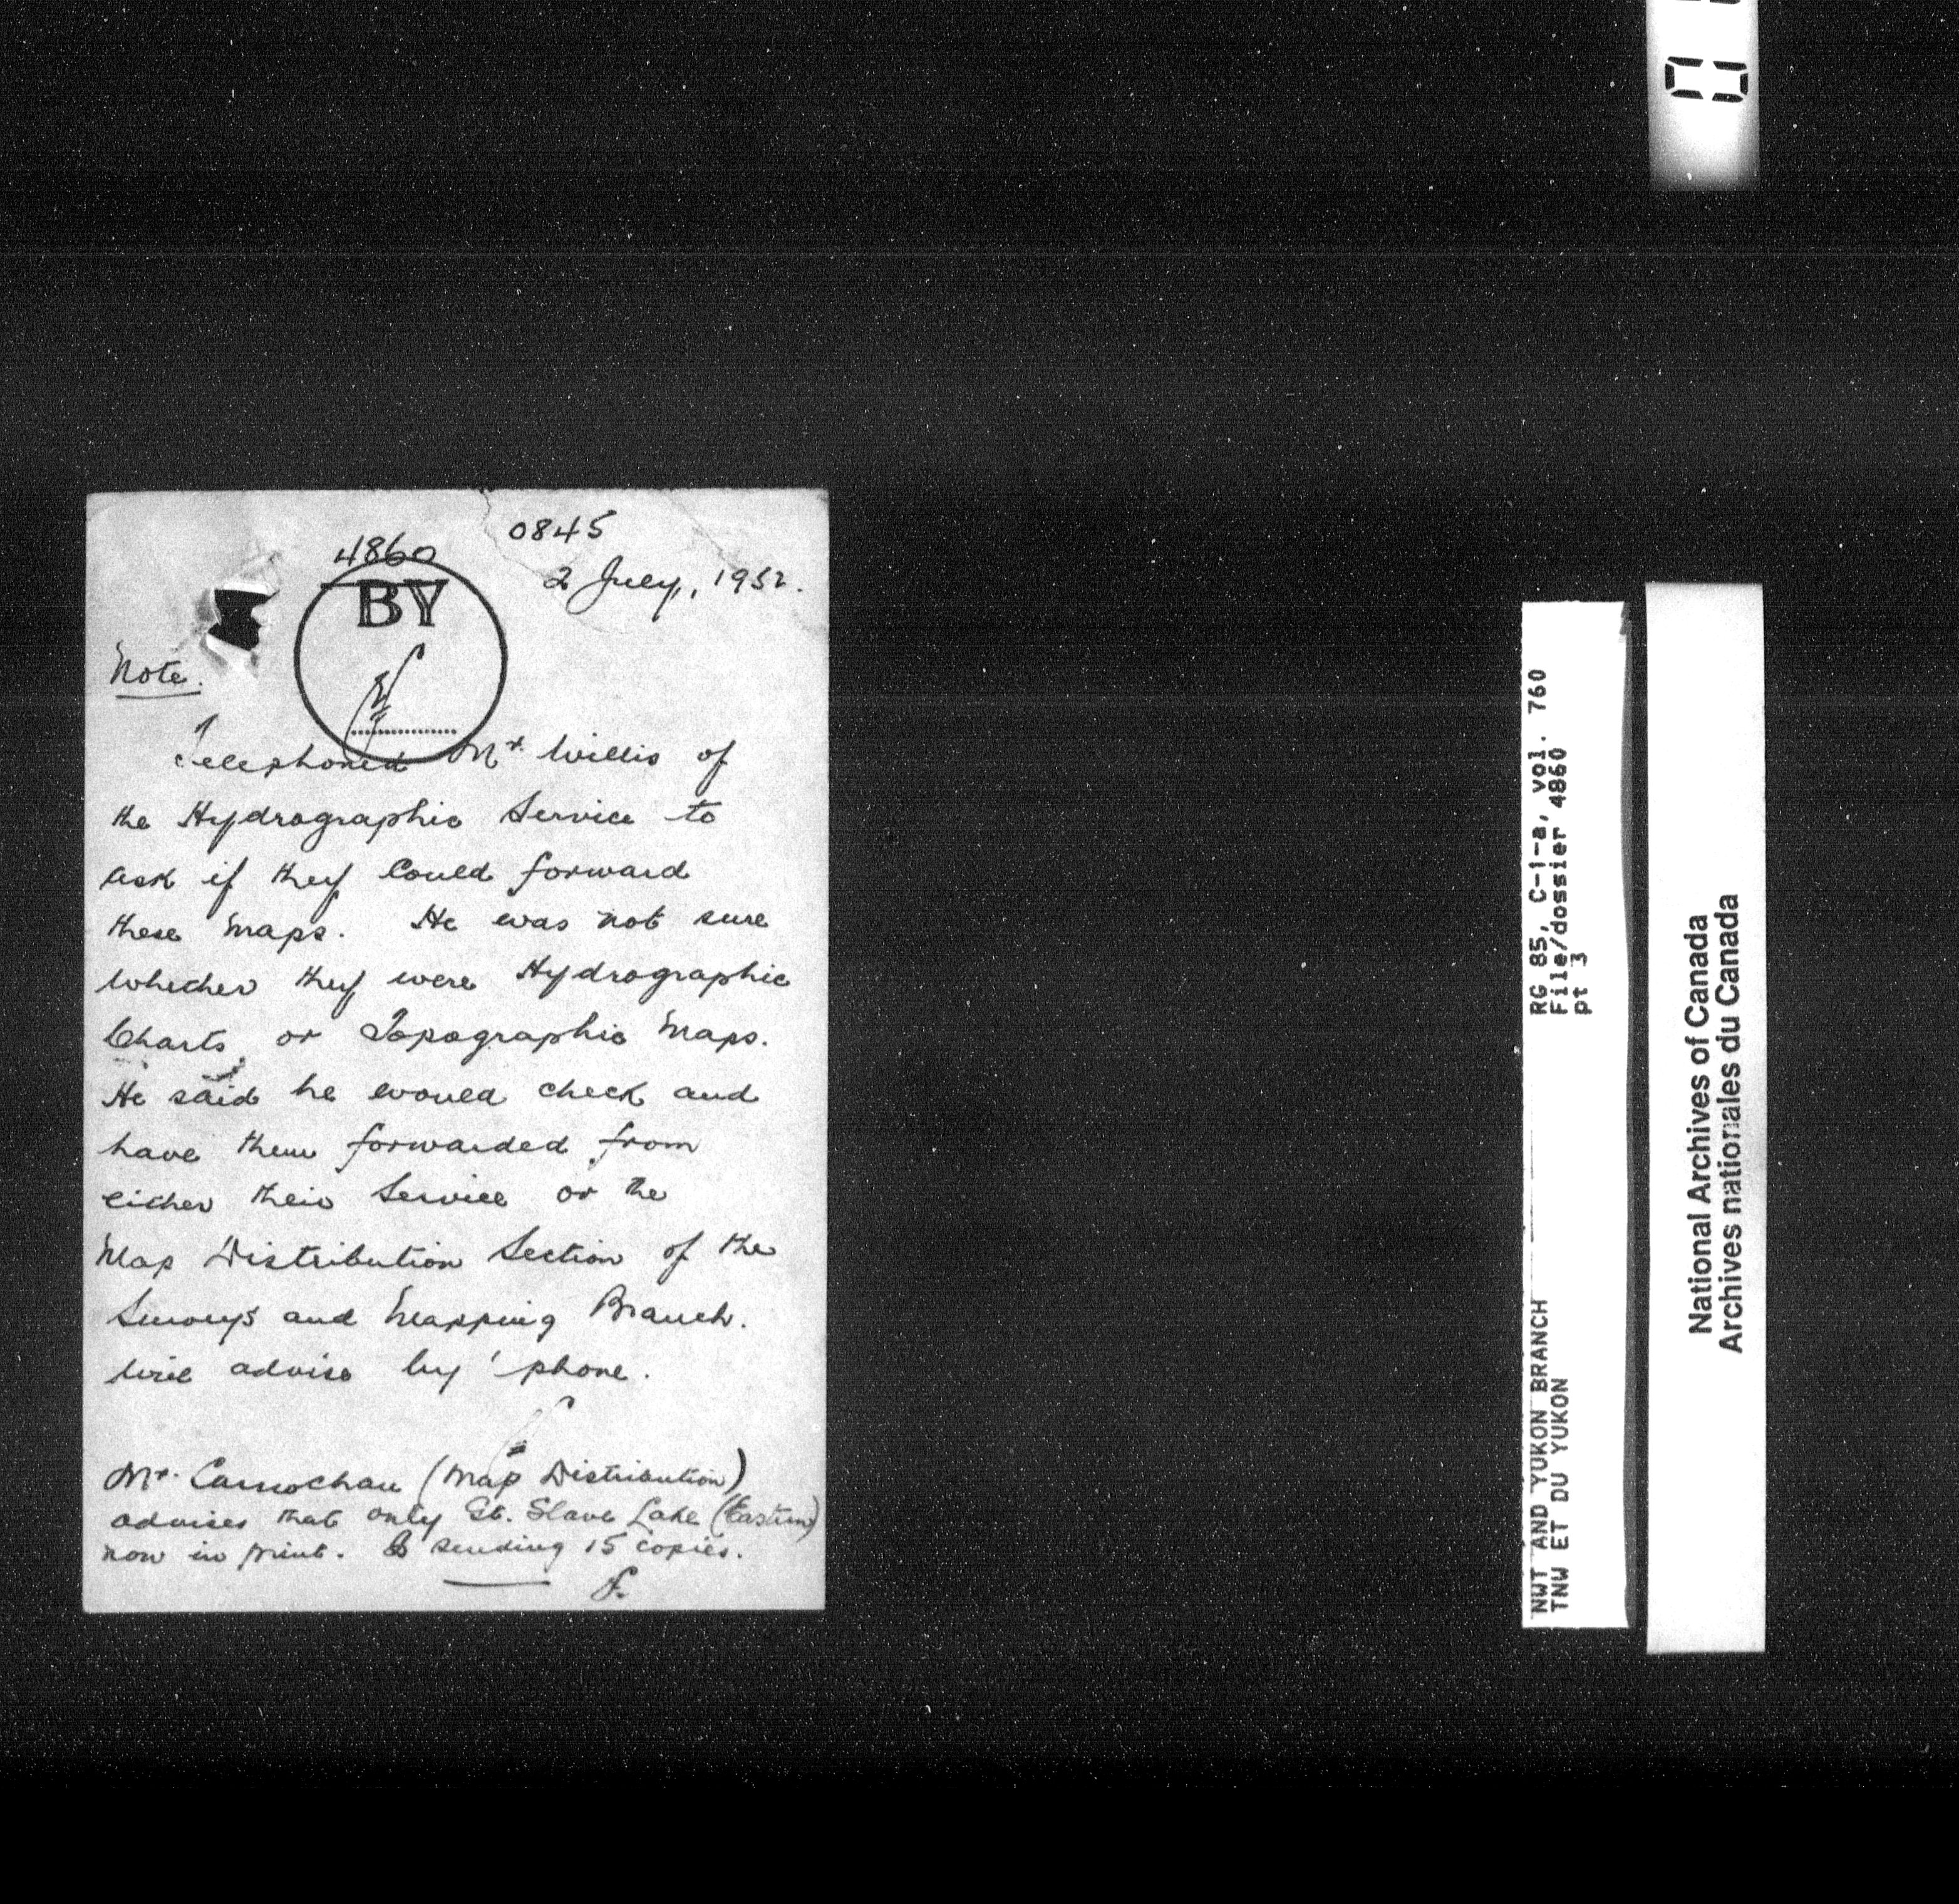 0845
4860
2 July, 1952.
BY
Note.
Telephoned Mr. Willis of
the Hydrographic Service to
ask if they could forward
these maps. He was not sure
whether they were Hydrographic
Charts or Topographic Maps.
He said he would check and
have them forwarded from
either their Service or the
Map Distribution Section of the
Surveys and Mapping Branch.
Will advise by 'phone.
Mr. Carnochan (Map Distribution)
advises that only Gt. Slave Lake (Eastern)
now in print. Is sending 15 copies.
RG 85, C-1-a, vol. 760
File/dossier 4860
pt 3
NWT AND YUKON BRANCH
TNW ET DU YUKON
National Archives of Canada
Archives nationales du Canada